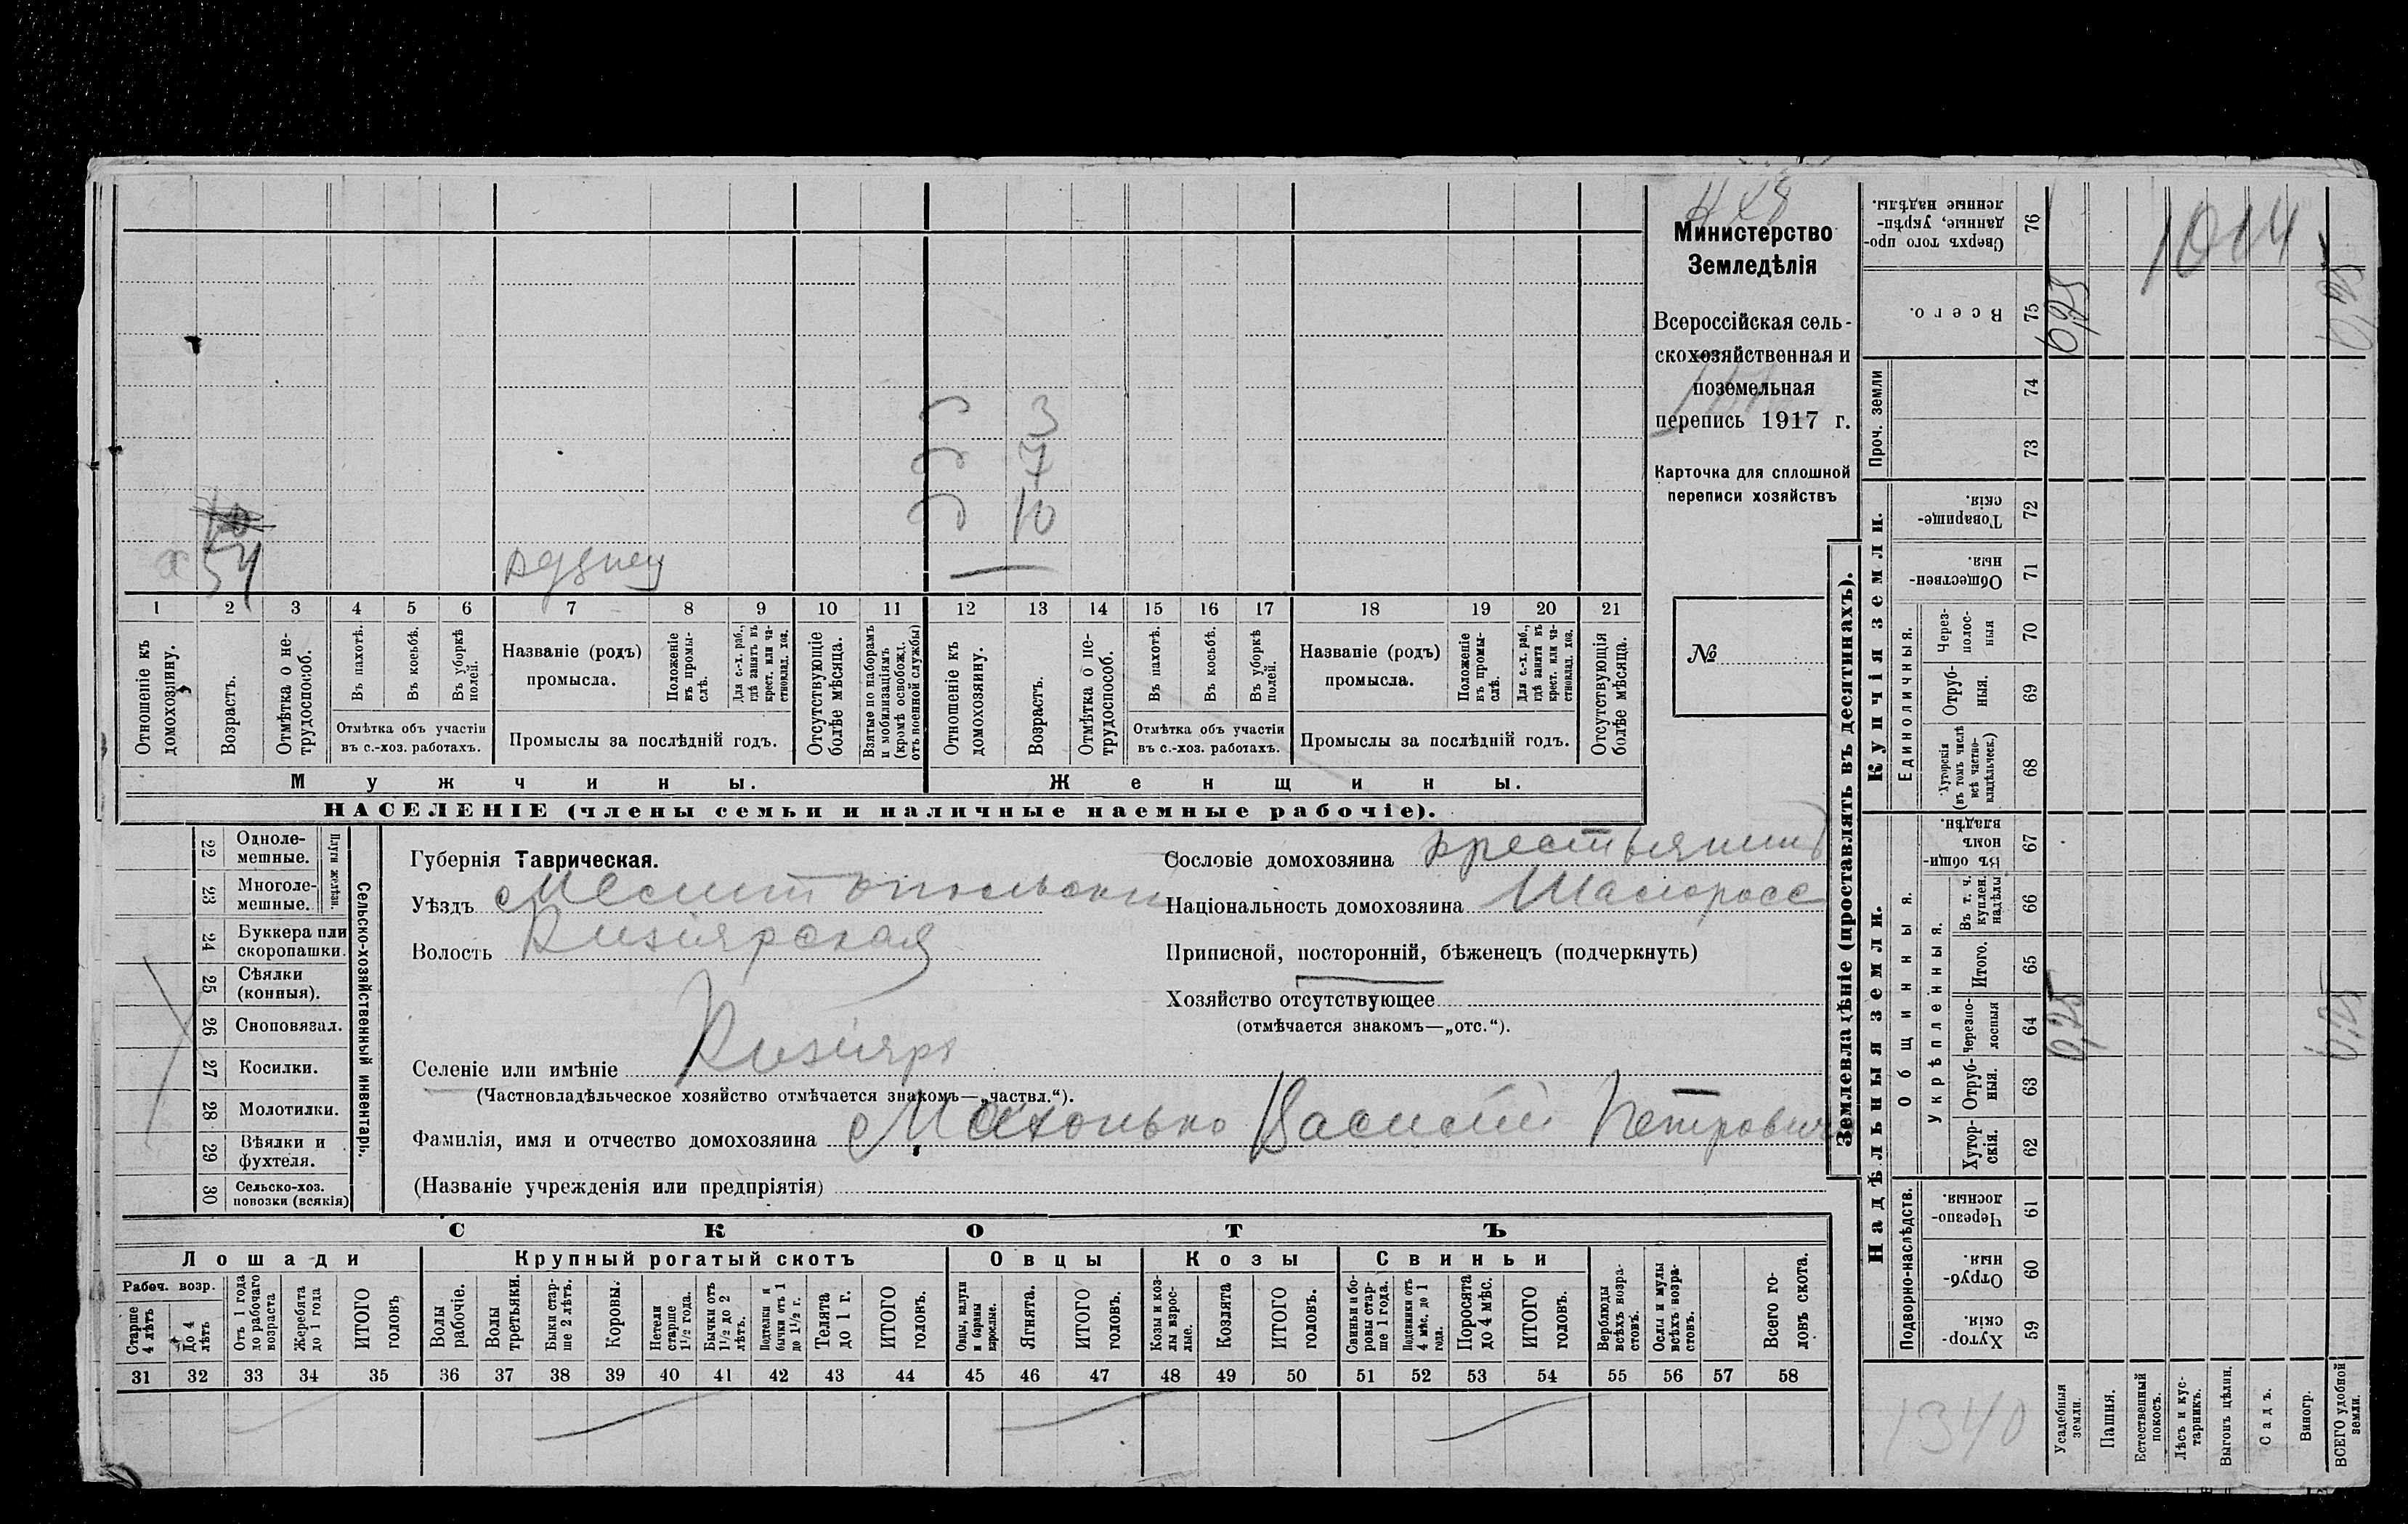 Н Х 8
Министерство
Земледѣлія
Всероссійская сель-
скохозяйственная и
поземельная
перепись 1917 г.
Карточка для сплошной
переписи хозяйствъ
№
3
7
10
х 54
1 2 3 4 5 6 7 8 9 10 11 12 13 14 15 16 17 18 19 20 21
Отношеніе къ домохозяину.
Возрастъ.
Отмѣтка о не-трудоспособ.
Въ пахотѣ.
Въ косьбѣ.
Въ уборкѣ полей.
Отмѣтка объ участіи
въ с.-хоз. работахъ.
Названіе (родъ)
промысла.
Положеніе въ промы-слѣ.
Для с.-х. раб., гдѣ занятъ въ крест. или ча-стновлад. хоз.
Промыслы за послѣдній годъ.
Отсутствующіе болѣе мѣсяца.
Взятые по наборамъ и мобилизаціямъ (кромѣ освобожд. отъ военной службы)
Отношеніе къ домохозяину.
Возрастъ.
Отмѣтка о не-трудоспособ.
Въ пахотѣ.
Въ косьбѣ.
Въ уборкѣ полей.
Отмѣтка объ участіи
въ с.-хоз. работахъ.
Названіе (родъ)
промысла.
Положеніе въ промы-слѣ.
Для с.-х. раб., гдѣ занята въ крест. или ча-стновлад. хоз.
Промыслы за послѣдній годъ.
Отсутствующія болѣе мѣсяца.
Мужчины.
Женщины.
НАСЕЛЕНІЕ (члены семьи и наличные наемные рабочіе).
22 Одноле-мешные.
23 Многоле-мешные.
Плуги желѣзн.
24 Буккера или скоропашки.
25 Сѣялки (конныя).
26 Сноповязал.
27 Косилки.
28 Молотилки.
29 Вѣялки и фухтеля.
30 Сельско-хоз. повозки (всякія)
Сельско-хозяйственный инвентарь.
Губернія Таврическая.
Уѣздъ Мелитопольскій
Волость Кизіярская
Селеніе или имѣніе Кизіяръ
(Частновладѣльческое хозяйство отмѣчается знакомъ—„частвл.“).
Фамилія, имя и отчество домохозяина Махонько Василій Петровичъ
(Названіе учрежденія или предпріятія)
Сословіе домохозяина крестьянинъ
Національность домохозяина Малороссъ
Приписной, посторонній, бѣженецъ (подчеркнуть)
Хозяйство отсутствующее
(отмѣчается знакомъ—„отс.“).
СКОТЪ
Лошади
Крупный рогатый скотъ
Овцы
Козы
Свиньи
Рабоч. возр.
Старше 4 лѣтъ
До 4 лѣтъ
Отъ 1 года до рабочаго возраста
Жеребята до 1 года
ИТОГО головъ
Волы рабочіе.
Волы третьяки.
Быки стар-ше 2 лѣтъ.
Коровы.
Нетели старше 1½ года.
Бычки отъ 1½ до 2 лѣтъ.
Подтелки и бычки отъ 1 до 1½ г.
Телята до 1 г.
ИТОГО головъ.
Овцы, валухи и бараны взрослые.
Ягнята.
ИТОГО головъ.
Козы и коз-лы взрос-лые.
Козлята
ИТОГО головъ.
Свиньи и бо-ровы стар-ше 1 года.
Подсвинки отъ 4 мѣс. до 1 года.
Поросята до 4 мѣс.
ИТОГО головъ.
Верблюды всѣхъ возра-стовъ.
Ослы и мулы всѣхъ возра-стовъ.
Всего го-ловъ скота.
31 32 33 34 35 36 37 38 39 40 41 42 43 44 45 46 47 48 49 50 51 52 53 54 55 56 57 58
Землевладѣніе (проставлять въ десятинахъ).
Надѣльныя земли.
Купчія земли.
Проч. земли
Подворно-наслѣдств.
Общинныя.
Укрѣпленныя.
Единоличныя.
Хутор-скія. 59
Отруб-ныя. 60
Черезпо-лосныя 61
Хутор-скія. 62
Отруб-ныя. 63
Черезпо-лосныя 64
Итого. 65
Въ т. ч. куплен. надѣлы 66
Въ общи-номъ владѣн. 67
Хуторскія (въ томъ числѣ всѣ частно-владѣльческ.) 68
Отруб-ныя. 69
Через-полос-ныя 70
Обществен-ныя. 71
Товарище-скія. 72
73
74
Всего. 75
Сверхъ того про-данные, укрѣп-ленные надѣлы. 76
Усадебныя земли.
0,25
0,25
Пашня.
Естественный покосъ.
Лѣсъ и кус-тарникъ.
Выгонъ цѣлин.
Садъ.
Виногр.
ВСЕГО удобной земли.
0,25
0,25
1014
1340